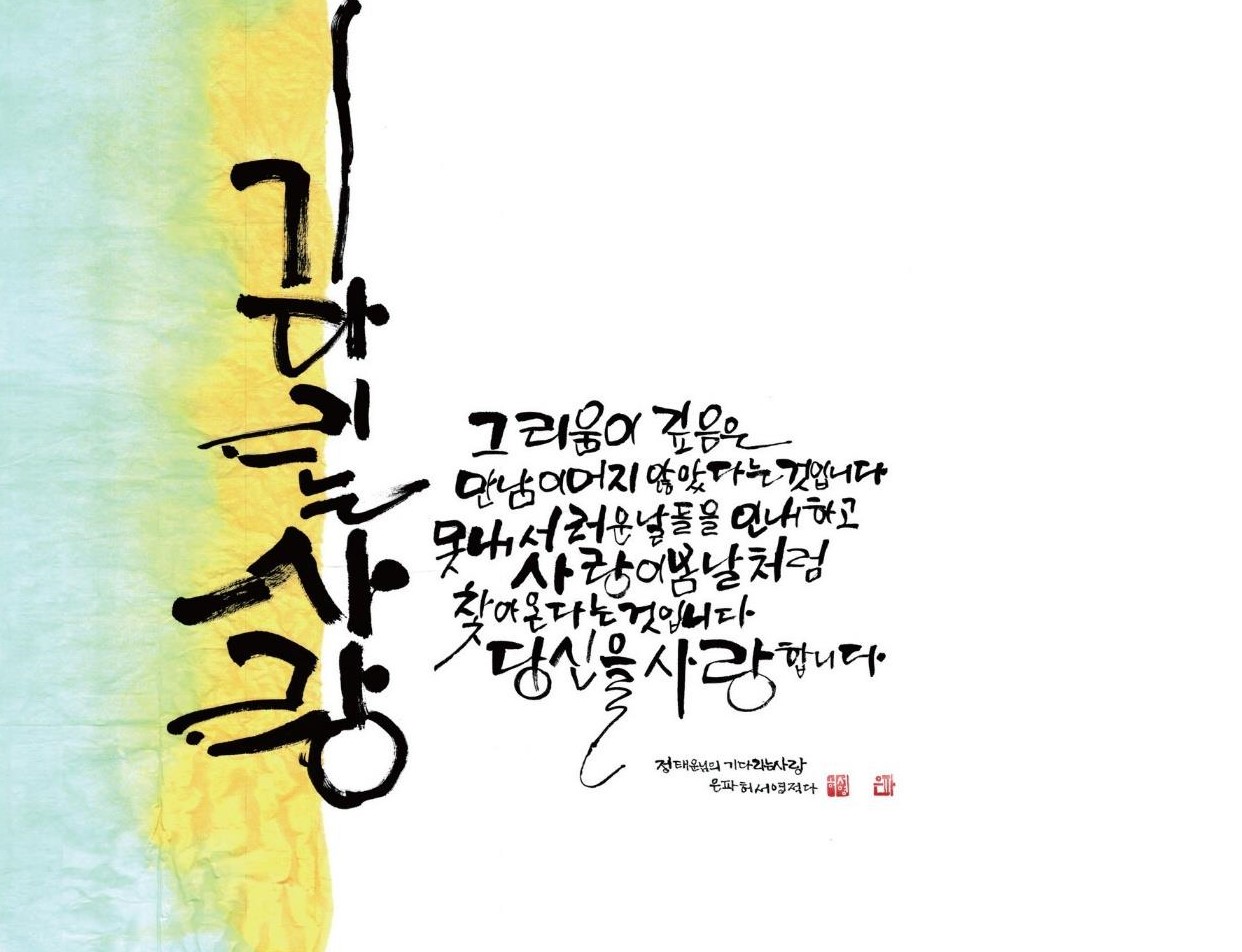 기다리는 사랑
그리움이 깊음은
만남이 머지 않았다는 것입니다
못내 서러운 날들을 인내하고
사랑이 봄날처럼
찾아온다는 것입니다
당신을 사랑합니다
정태운님의 기다리는 사랑
은파 허서영 적다
은파